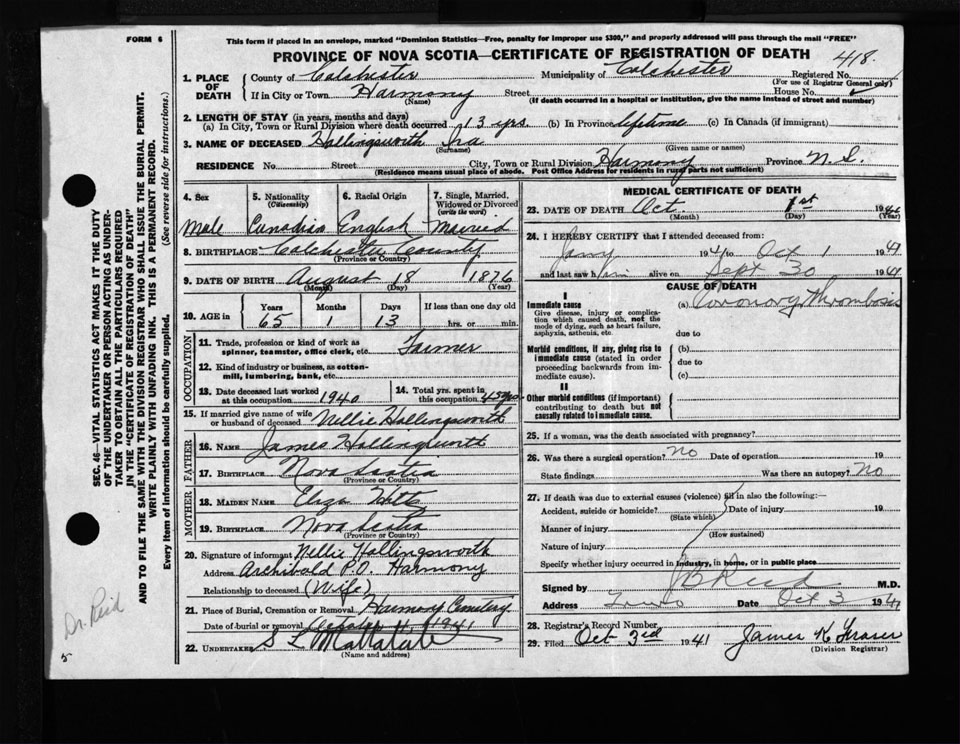 FORM 6
This form if placed in an envelope, marked "Dominion Statistics—Free, penalty for improper use $300," and properly addressed will pass through the mail "FREE"
PROVINCE OF NOVA SCOTIA—CERTIFICATE OF REGISTRATION OF DEATH
418.
1. PLACE OF DEATH County of Colchester Municipality of Colchester Registered No.
(For use of Registrar General only)
If in City or Town Harmony Street House No.
(Name) (If death occurred in a hospital or institution, give the name instead of street and number)
2. LENGTH OF STAY (in years, months and days)
(a) In City, Town or Rural Division where death occurred 13 yrs. (b) In Province lifetime (c) In Canada (if immigrant)
3. NAME OF DECEASED Hollingsworth Ira
(Surname) (Given name or names)
RESIDENCE No. Street City, Town or Rural Division Harmony Province N.S.
(Residence means usual place of abode. Post Office Address for residents in rural parts not sufficient)
4. Sex Male
5. Nationality (Citizenship) Canadian
6. Racial Origin English
7. Single, Married, Widowed or Divorced (write the word) Married
8. BIRTHPLACE Colchester County
(Province or Country)
9. DATE OF BIRTH August 18 1876
(Month) (Day) (Year)
10. AGE in Years Months Days If less than one day old
65 1 13 hrs. or min.
OCCUPATION
11. Trade, profession or kind of work as spinner, teamster, office clerk, etc. Farmer
12. Kind of industry or business, as cotton-mill, lumbering, bank, etc.
13. Date deceased last worked at this occupation 1940
14. Total yrs. spent in this occupation 45 yrs.
15. If married give name of wife or husband of deceased Nellie Hollingsworth
FATHER
16. NAME James Hollingsworth
17. BIRTHPLACE Nova Scotia
(Province or Country)
MOTHER
18. MAIDEN NAME Eliza
19. BIRTHPLACE Nova Scotia
(Province or Country)
20. Signature of informant Nellie Hollingsworth
Address Archibald P.O. Harmony
Relationship to deceased (Wife)
21. Place of Burial, Cremation or Removal Harmony Cemetery
Date of burial or removal October 1941
22. UNDERTAKER S L
(Name and address)
MEDICAL CERTIFICATE OF DEATH
23. DATE OF DEATH Oct 1st 19
(Month) (Day) (Year)
24. I HEREBY CERTIFY that I attended deceased from:
Jany 1941 to Oct 1 1941
and last saw him alive on Sept 30 1941
CAUSE OF DEATH
I
Immediate cause (a) Coronary Thrombosis
Give disease, injury or complication which caused death, not the mode of dying, such as heart failure, asphyxia, asthenia, etc.
due to
Morbid conditions, if any, giving rise to immediate cause (stated in order proceeding backwards from immediate cause).
(b)
due to
(c)
II
Other morbid conditions (if important) contributing to death but not causally related to immediate cause.
25. If a woman, was the death associated with pregnancy?
26. Was there a surgical operation? No Date of operation 19
State findings Was there an autopsy? No
27. If death was due to external causes (violence) fill in also the following:—
Accident, suicide or homicide? Date of injury 19
(State which)
Manner of injury
(How sustained)
Nature of injury
Specify whether injury occurred in industry, in home, or in public place
Signed by J B Reid M.D.
Address Truro Date Oct 3 1941
28. Registrar's Record Number
29. Filed Oct 3rd 1941 James K Fraser
(Division Registrar)
SEC. 46—VITAL STATISTICS ACT MAKES IT THE DUTY
OF THE UNDERTAKER OR PERSON ACTING AS UNDER-
TAKER TO OBTAIN ALL THE PARTICULARS REQUIRED
IN THE "CERTIFICATE OF REGISTRATION OF DEATH"
AND TO FILE THE SAME WITH THE DIVISION REGISTRAR WHO SHALL ISSUE THE BURIAL PERMIT.
WRITE PLAINLY WITH UNFADING INK. THIS IS A PERMANENT RECORD.
Every item of information should be carefully supplied. (See reverse side for instructions.)
Dr. Reid
5